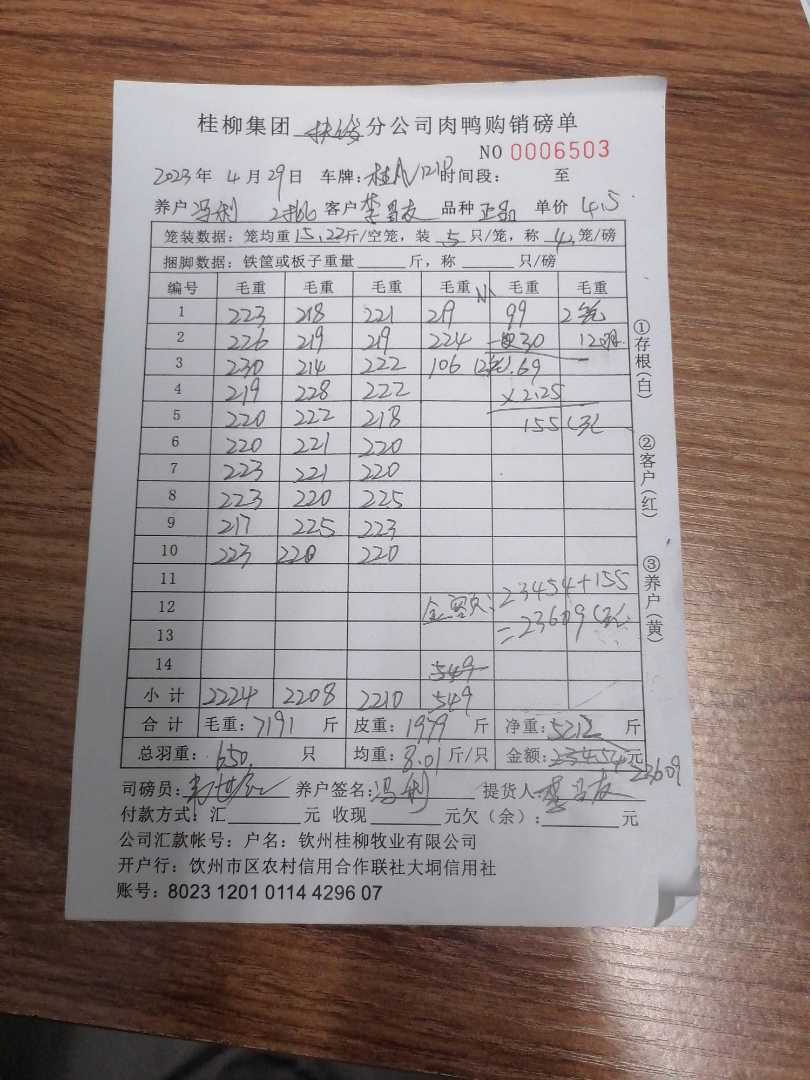 桂柳集团 分公司肉鸭购销磅单
NO 0006503
2023年 4月29日 车牌: 桂A 时间段: 至
养户 冯利 客户 李昌友 品种 正品 单价 4.5
笼装数据: 笼均重15.22斤/空笼, 装 5 只/笼, 称 4 笼/磅
捆脚数据: 铁筐或板子重量 斤, 称 只/磅
编号 毛重 毛重 毛重 毛重 毛重 毛重
1 223 218 221 219 99 2笼
2 226 219 219 224 -30 12只
3 230 214 222 106 69
4 219 228 222 ×2.25
5 220 222 218 155
6 220 221 220
7 223 221 220
8 223 220 225
9 217 225 223
10 223 220 220
11 23454+155
12 金额 =23609
13
14 549
小计 2224 2208 2210 549
合计 毛重: 7191 斤 皮重: 1979 斤 净重: 5212 斤
总羽重: 650 只 均重: 8.01 斤/只 金额: 23454元
23609
司磅员: 养户签名: 冯利 提货人: 李昌友
付款方式: 汇 元 收现 元欠(余): 元
公司汇款帐号: 户名: 钦州桂柳牧业有限公司
开户行: 饮州市区农村信用合作联社大垌信用社
账号: 8023 1201 0114 4296 07
①存根(白)
②客户(红)
③养户(黄)